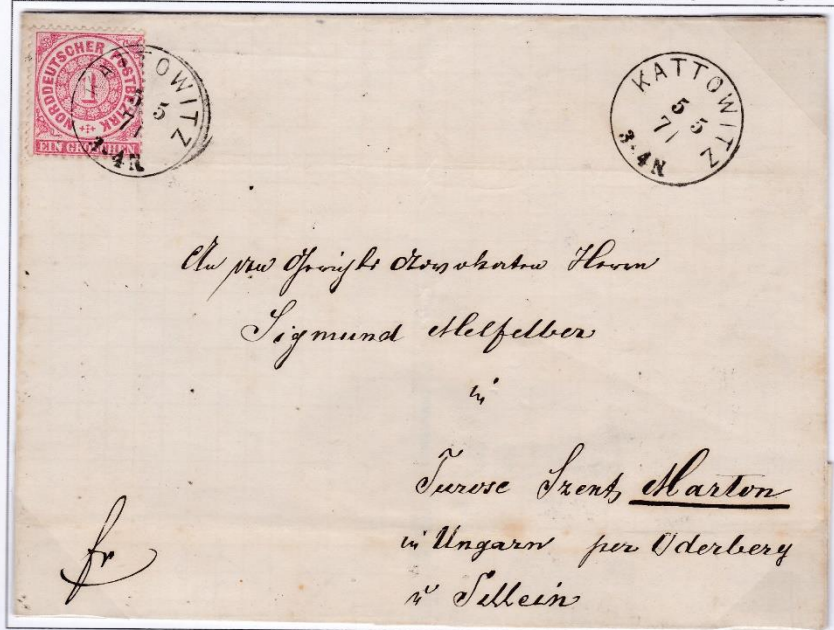 NORDDEUTSCHER POSTBEZIRK
1
EIN GROSCHEN
KATTOWITZ
5 5
71
3-4N
KATTOWITZ
5 5
71
3-4N
An den Gerichts Advokaten Herrn
Sigmund
in
Turosc Szent Marton
in Ungarn per Oderberg
u Sillein
fr